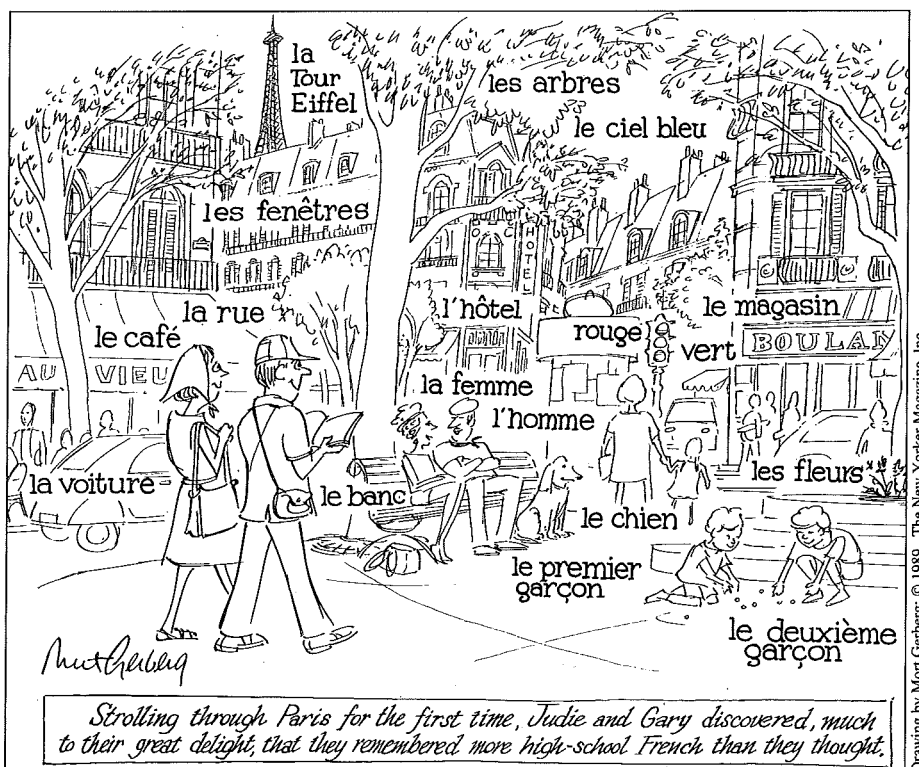 la
Tour
Eiffel
les arbres
le ciel bleu
les fenêtres
HOTEL
la rue
l'hôtel
le magasin
le café
rouge
vert
BOULAN
AU VIEU
la femme
l'homme
la voiture
le banc
les fleurs
le chien
le premier
garçon
le deuxième
garçon
Mort Gerberg
Strolling through Paris for the first time, Judie and Gary discovered, much
to their great delight, that they remembered more high-school French than they thought.
Drawing by Mort Gerberg; © 1989, The New Yorker Magazine, Inc.